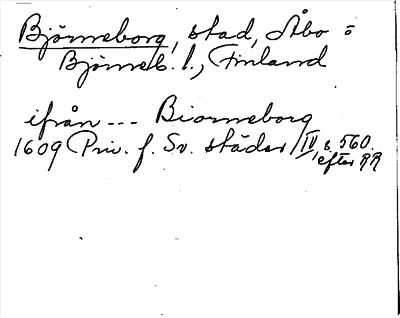 Björneborg, stad, Åbo =
Björneb. l., Finland
ifrån --- Biorneborg
1609 Priv. f. Sv. städer IV, s. 560.
efter RR